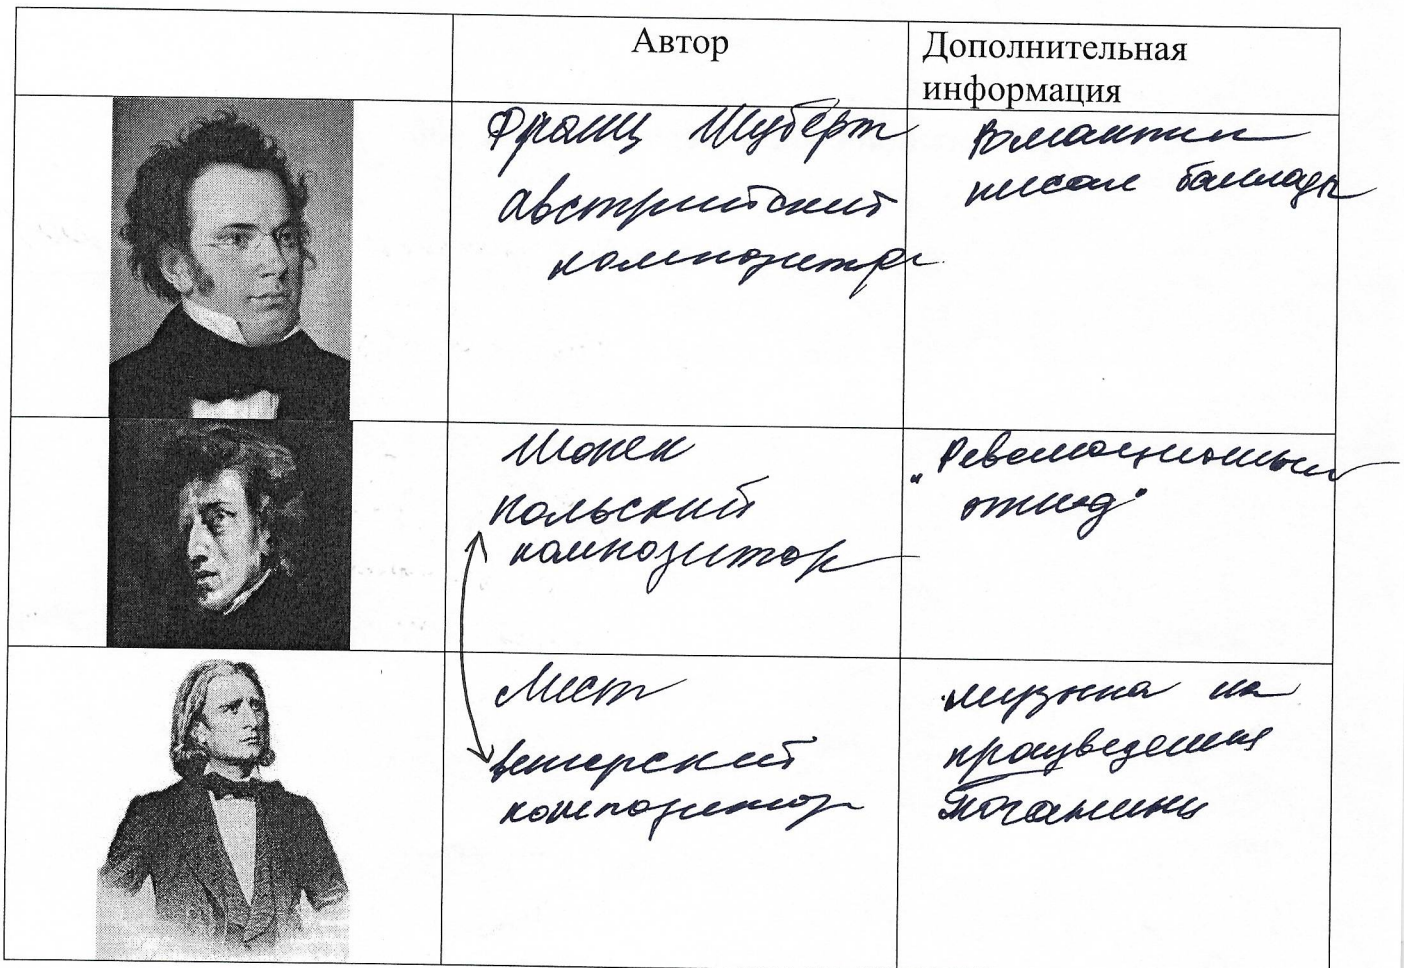 Автор
Дополнительная
информация
Франц Шуберт
австрийский
композитор
Романтик
писал баллады
Шопен
польский
композитор
"Революционный
этюд"
Лист
венгерский
композитор
музыка на
произведения
Паганини